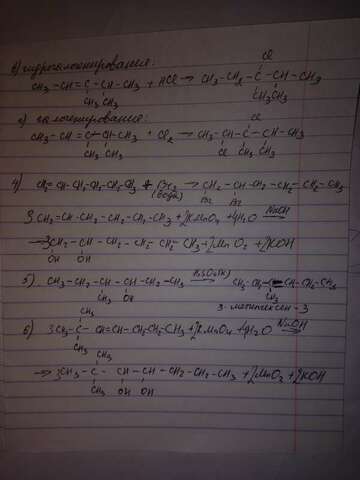 в) гидрогалогенирование:
Cl
CH3 - CH = C - CH - CH3 + HCl → CH3 - CH2 - C - CH - CH3
CH3 CH3 CH3 CH3
г) галогенирование:
Cl
CH3 - CH = C - CH - CH3 + Cl2 → CH3 - CH - C - CH - CH3
CH3 CH3 Cl CH3 CH3
4) CH2 = CH - CH2 - CH2 - CH2 - CH3 + Br2 → CH2 - CH - CH2 - CH2 - CH2 - CH3
(вода) Br Br
3CH2 = CH - CH2 - CH2 - CH2 - CH3 + 2KMnO4 + 4H2O NaOH →
→ 3CH2 - CH - CH2 - CH2 - CH2 - CH3 + 2MnO2 + 2KOH
OH OH
5) CH3 - CH2 - CH - CH - CH2 - CH3 H2SO4(к) → CH3 - CH2 - C = CH - CH2 - CH3
CH3 OH CH3
3-метилгексен-3
CH3
6) 3CH3 - C - CH = CH - CH2 - CH2 - CH3 + 2KMnO4 + 4H2O NaOH →
CH3
CH3
→ 3CH3 - C - CH - CH - CH2 - CH2 - CH3 + 2MnO2 + 2KOH
CH3 OH OH